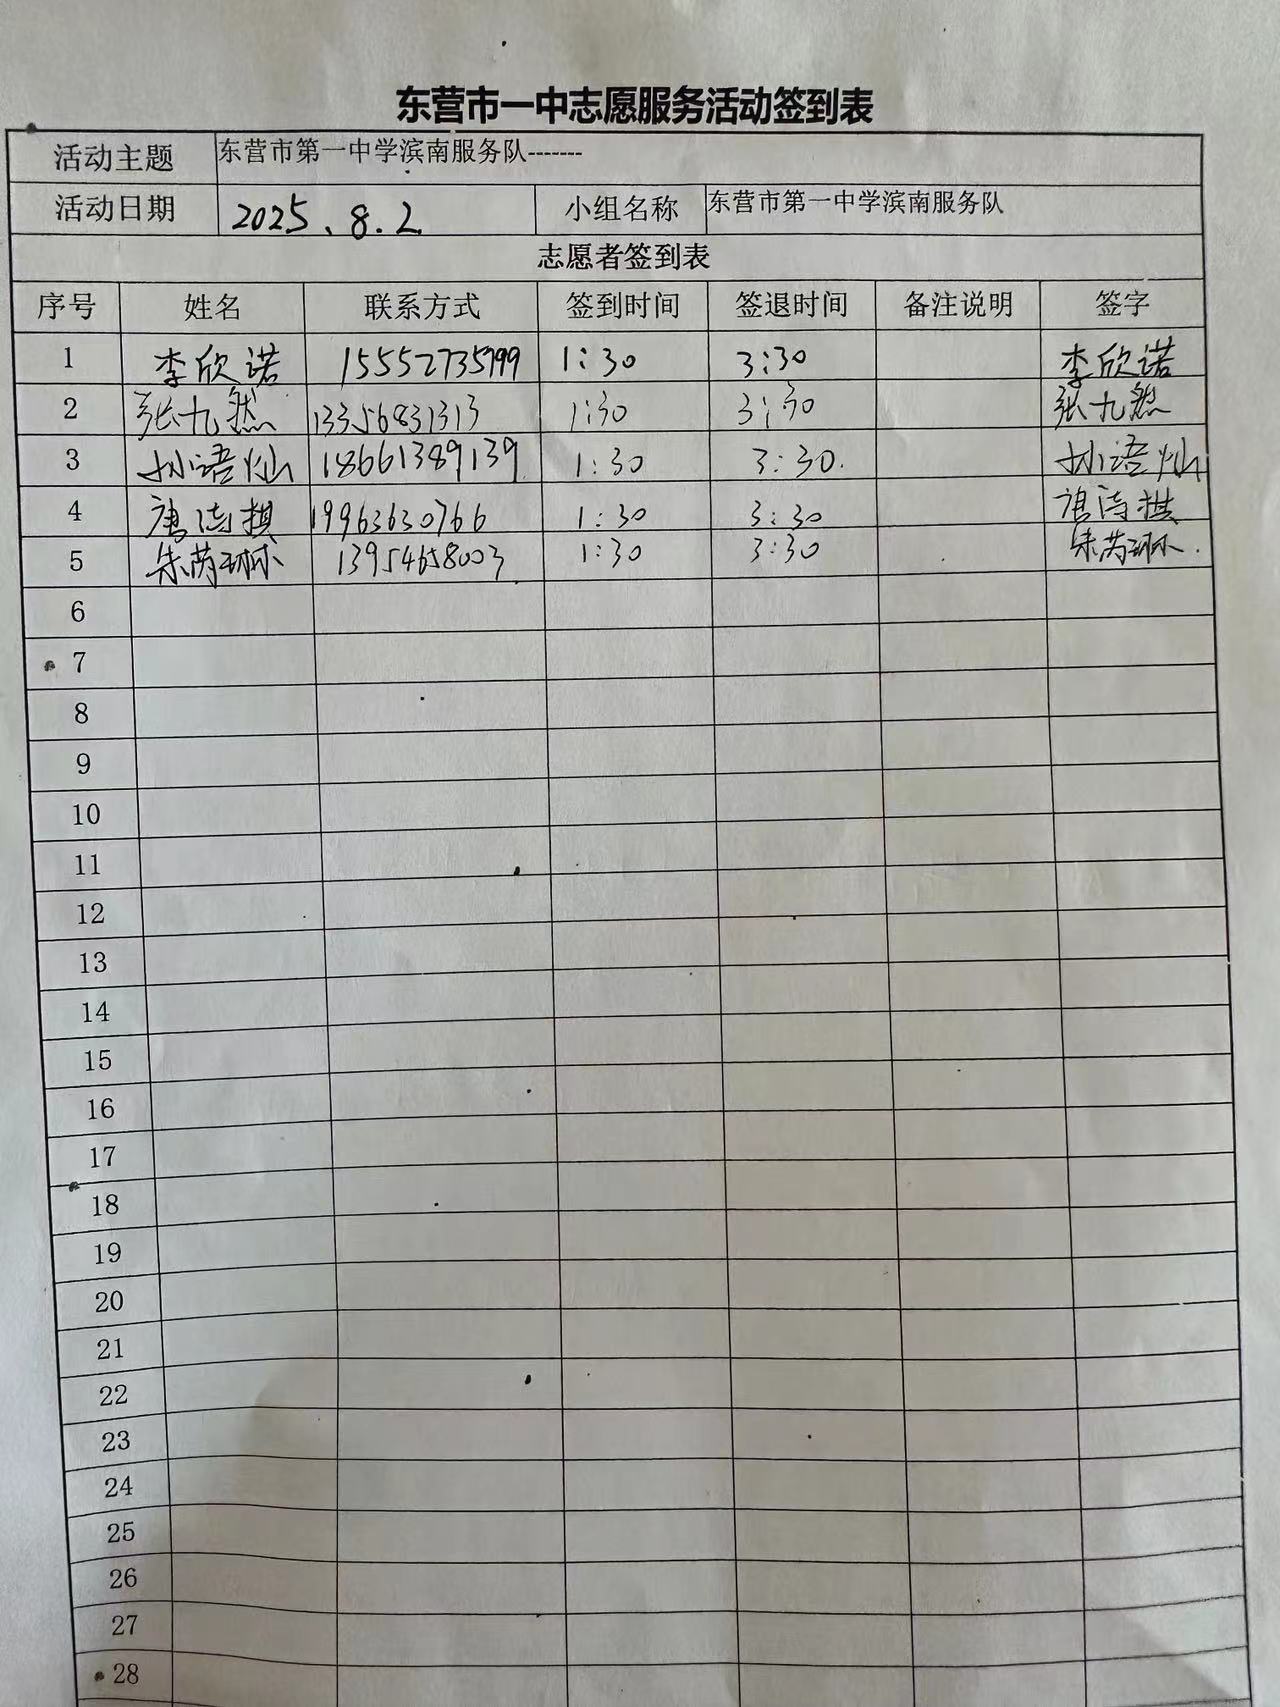 东营市一中志愿服务活动签到表
活动主题 东营市第一中学滨南服务队-------
活动日期 2025.8.2 小组名称 东营市第一中学滨南服务队
志愿者签到表
序号 姓名 联系方式 签到时间 签退时间 备注说明 签字
1 李欣诺 15552735799 1:30 3:30 李欣诺
2 张九然 13356831313 1:30 3:30 张九然
3 孙语灿 18661389139 1:30 3:30. 孙语灿
4 唐诗棋 19963630766 1:30 3:30 唐诗棋
5 朱芮琳 13954658003 1:30 3:30 朱芮琳.
6
7
8
9
10
11
12
13
14
15
16
17
18
19
20
21
22
23
24
25
26
27
28